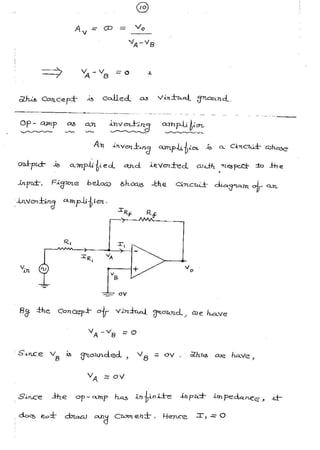 10
A_V = ∞ = V_o / (V_A - V_B)
⟹ V_A - V_B = 0
This Concept is called as virtual ground.
Op - amp as an inverting amplifier
An inverting amplifier is a circuit whose
output is amplified and inverted with respect to the
input. Figure below shows the circuit diagram of an
inverting amplifier.
I_Rf R_f
R_1 I_1
I_R1 V_A
V_in V_B V_o
- +
0V
By the Concept of virtual ground, we have
V_A - V_B = 0
Since V_B is grounded, V_B = 0V. Thus we have,
V_A = 0V
Since the op-amp has infinite input impedance, it
does not draw any Current. Hence I_1 = 0